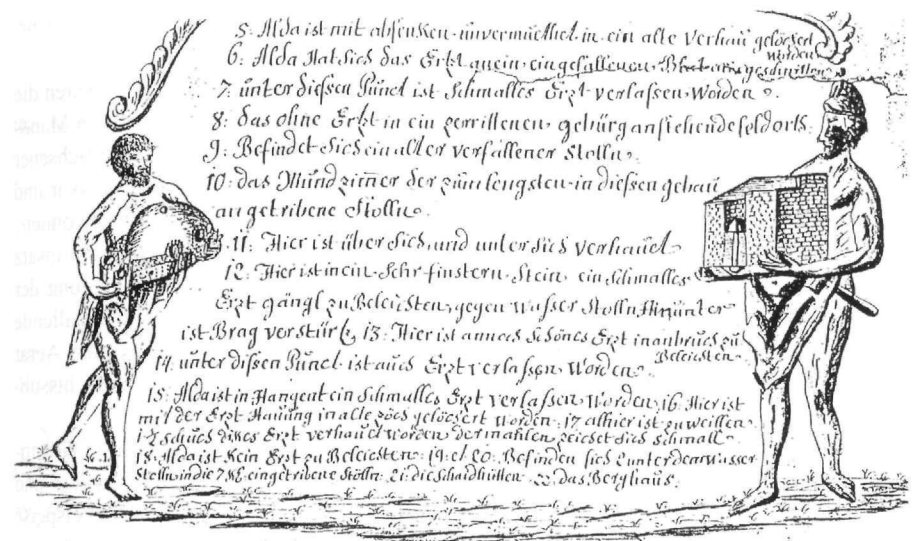 5: Alda ist mit absenken unvermuethet in ein alte Verhau gelöchert
worden
6: Alda Hat sich das Erzt an ein eingefallenen geschnitten
7: unter diessen Punct ist Schmalles Erzt verlassen Worden.
8: das ohne Erzt in ein zerrillenen gebürg anstehende feldorth.
9: Befindet sich ein alter verfallener Stolln.
10: das Mundzimer der zum lengsten in diessen gebau
angetribene Stolln.
11: Hier ist über sich und unter sich Verhauet
12: Hier ist in ein Sehr finstern Stein ein schmalles
Erzt gängl zu Beleichten, gegen Wasser Stolln Hinunter
ist Brag vorstürtz 13: Hier ist annoch schönes Erzt in anbruch zu
Beleichten
14: unter dissen Punct ist auch Erzt verlassen Worden.
15: Alda ist in Hangent ein Schmalles Erzt verlassen Worden, 16: Hier ist
mit der Erzt Hauung in alte zöch gelöchert worden. 17 alhier ist zu weillen
1½ schuch dikes Erzt verhauet worden, dermahlen zeichet sich schmall
18: Alda ist Kein Erzt zu Beleichten: 19. et 20: Befinden sich 2 unter dem Wasser
Stolln in die 7 eingetribene Stölln. 21: die Schaidhütten. 22: das Berghaus.